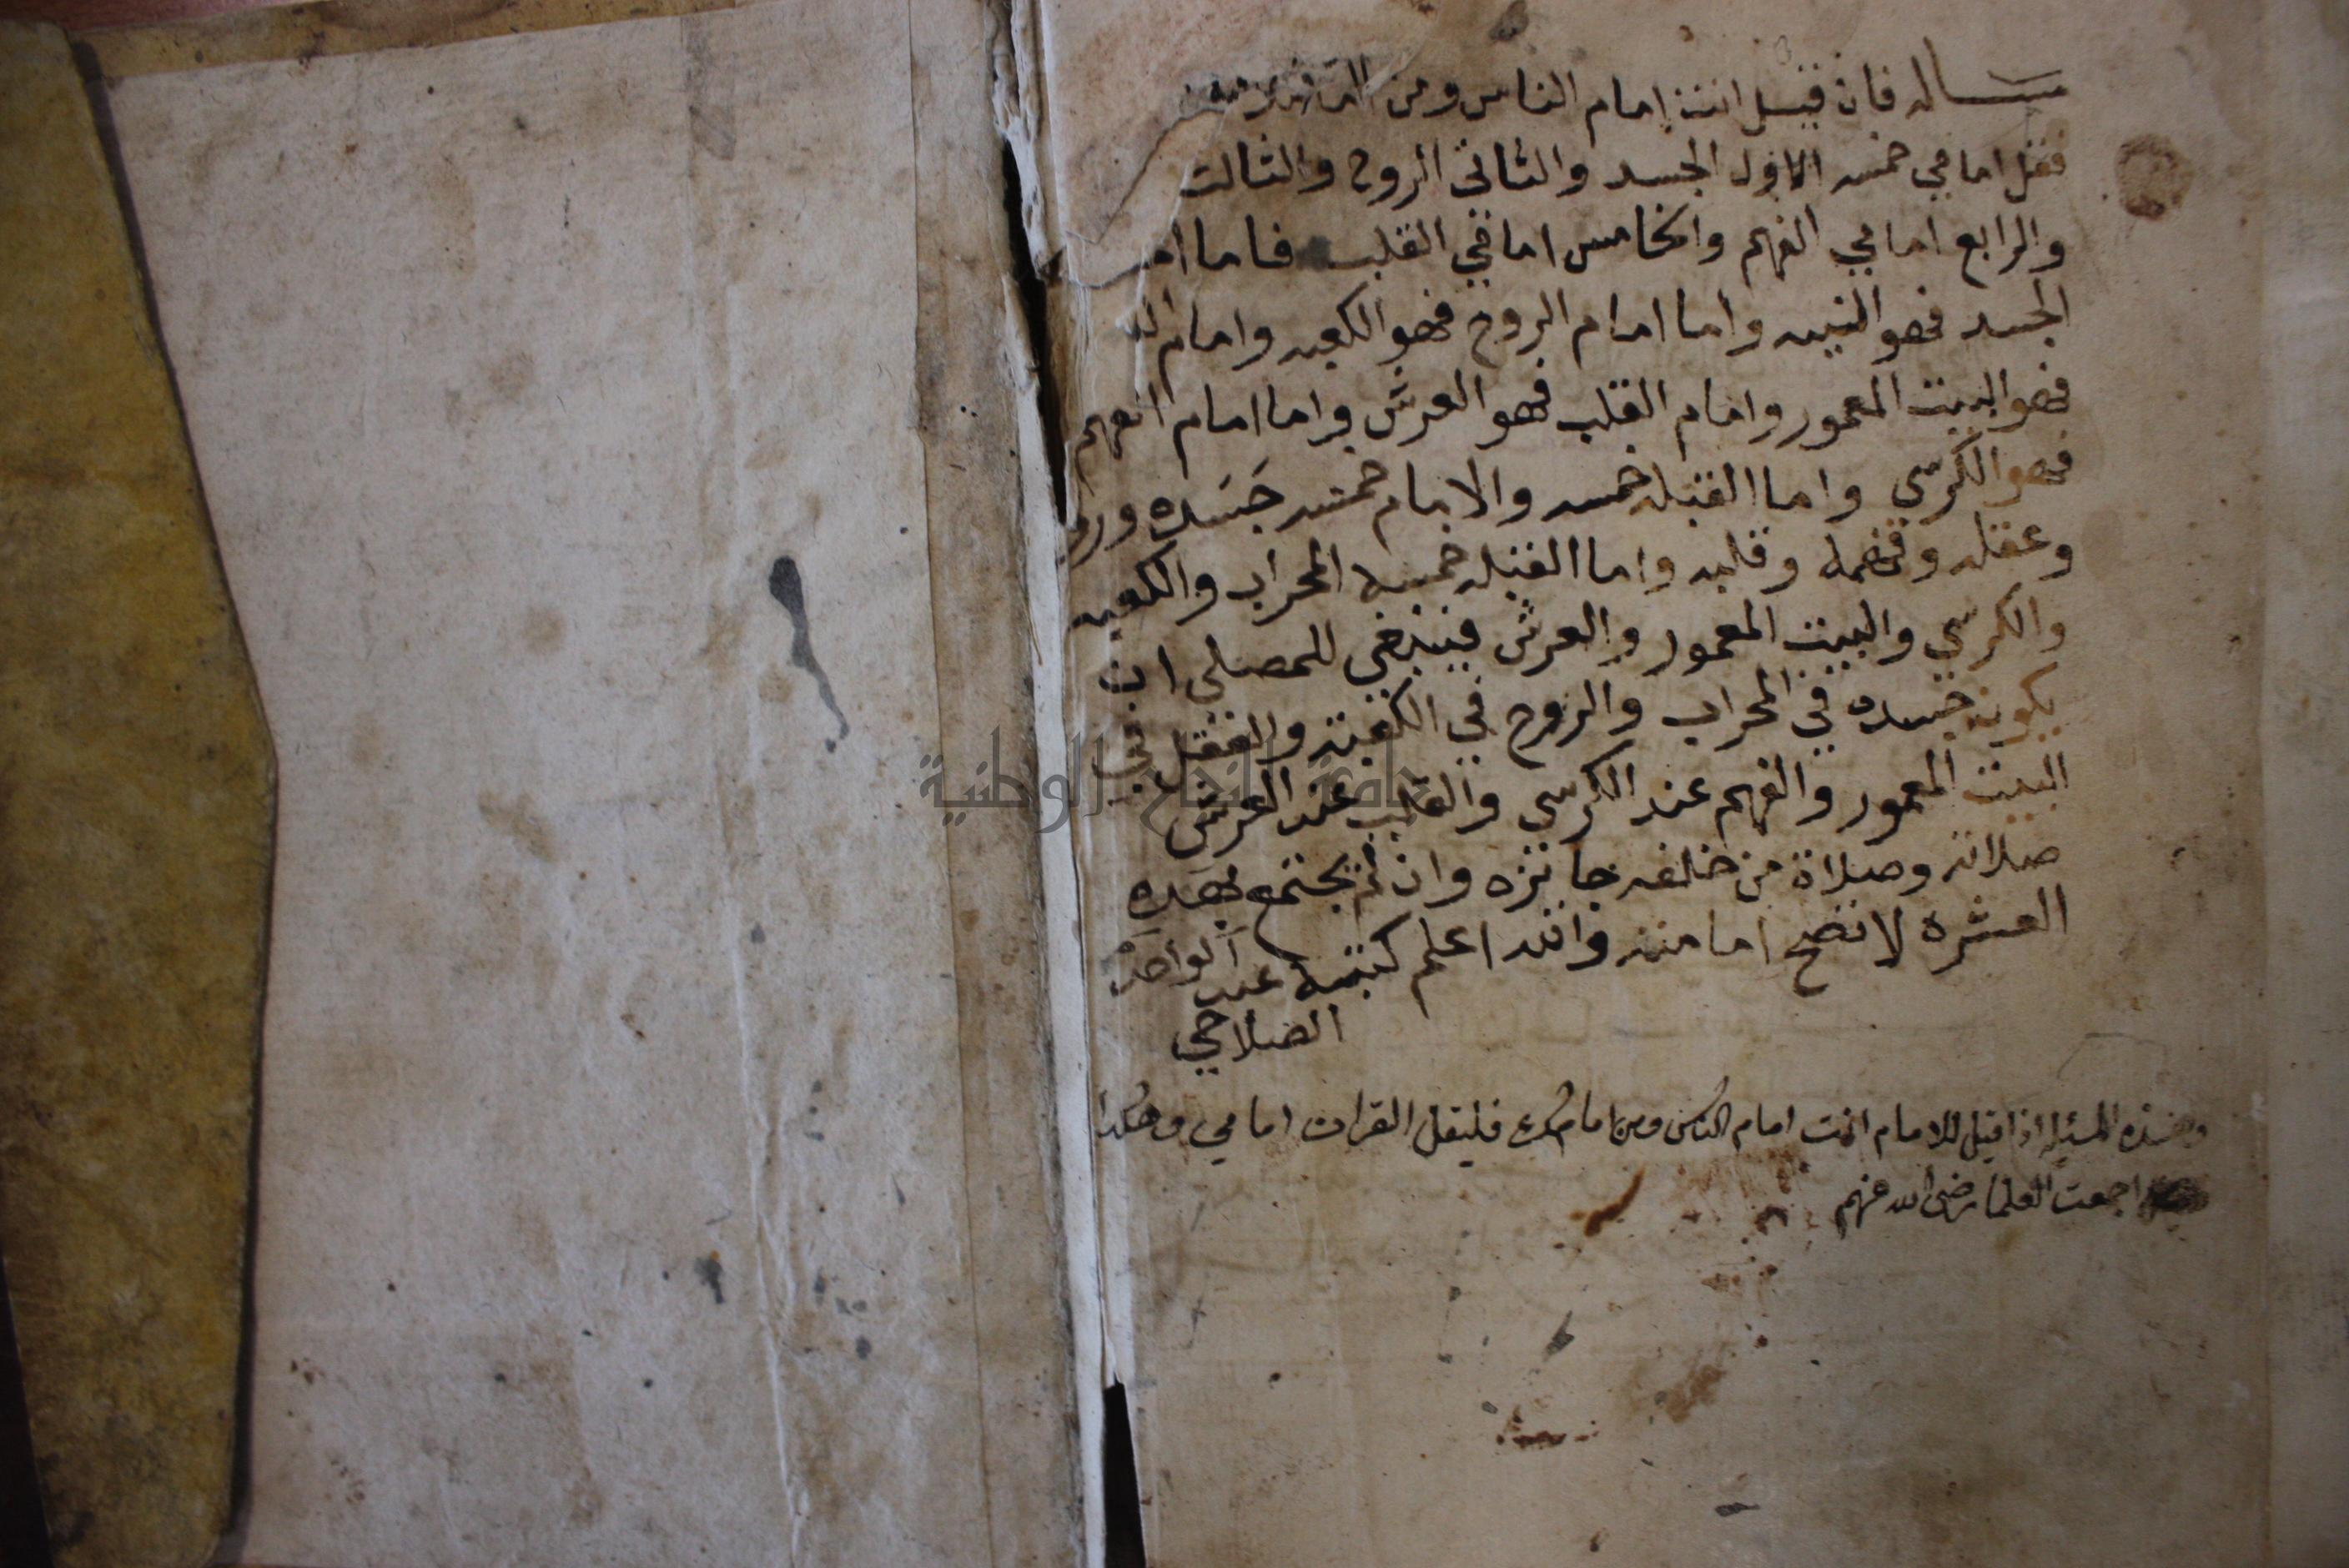 مساله فان قيل انت امام الناس ومن
فقل امامي خمسه الاول الجسد والثاني الروح والثالث
والرابع امامي الفهم والخامس امامي القلب فاما
الجسد فهو واما امام الروح فهو الكعبه وامام
فهو البيت المعمور وامام القلب فهو العرش واما امام الفهم
فهو الكرسي واما القبله خمسه والامام خمسه جسده
وعقله وفهمه وقلبه واما القبله خمسة المحراب والكعبه
والكرسي والبيت المعمور والعرش فينبغي للمصلي ان
يكون جسده في المحراب والروح في الكعبة والعقل في
البيت المعمور والفهم عند الكرسي والقلب عند العرش
صلاته وصلاة من خلفه جائزه وان لم يجتمع بهذه
العشره لا تصح امامته والله اعلم كتبه عبد الواحد
الصلاحي
وهذه المسئله اذا قيل للامام انت امام الناس ومن امامك فليقل القران امامي وهكذا
اجمعت العلما رضي الله عنهم
جامعة النجاح الوطنية